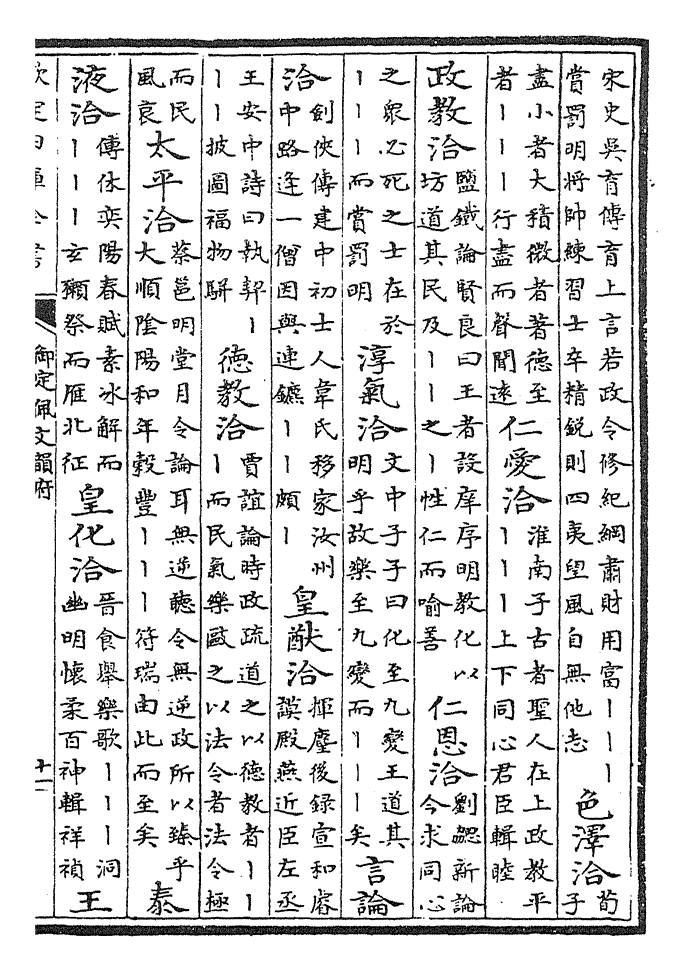 宋史吳育傳育上言若政令修紀綱肅財用富丨丨丨
賞罰明將帥練習士卒精銳則四夷望風自無他志
色澤洽
荀
子
盡小者大積微者著德至
者丨丨丨行盡而聲聞遠
仁愛洽
淮南子古者聖人在上政教平
丨丨丨上下同心君臣輯睦
政教洽
鹽鐵論賢良曰王者設庠序明教化以
坊道其民及丨丨之丨性仁而喻善
仁恩洽
劉勰新論
今求同心
之衆必死之士在於
丨丨丨而賞罰明
淳氣洽
文中子子曰化至九變王道其
明乎故樂至九變而丨丨丨矣
言論
洽
劍俠傳建中初士人韋氏移家汝州
中路逢一僧因與連鑣丨丨頗丨
皇猷洽
揮麈後錄宣和睿
謨殿燕近臣左丞
王安中詩曰執契丨
丨丨披圖福物駢
德教洽
賈誼論時政疏道之以德教者丨丨
丨而民氣樂歐之以法令者法令極
而民
風哀
太平洽
蔡邕明堂月令論耳無逆聽令無逆政所以臻乎
大順陰陽和年穀豐丨丨丨符瑞由此而至矣
泰
液洽
傅休奕陽春賦素冰解而
丨丨丨玄獺祭而雁北征
皇化洽
晉食舉樂歌丨丨丨洞
幽明懷柔百神輯祥禎
王
欽定四庫全書
御定佩文韻府
十一